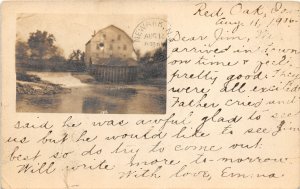 Red Oak,
Aug. 11, 1906
Dear Jim,
arrived in town
on time & feel
pretty good. They
were all excited
Father cried and
said he was awful glad to see
us but he would like to see Jim
best so do try to come out.
Will write more to-morrow.
With love, Emma.